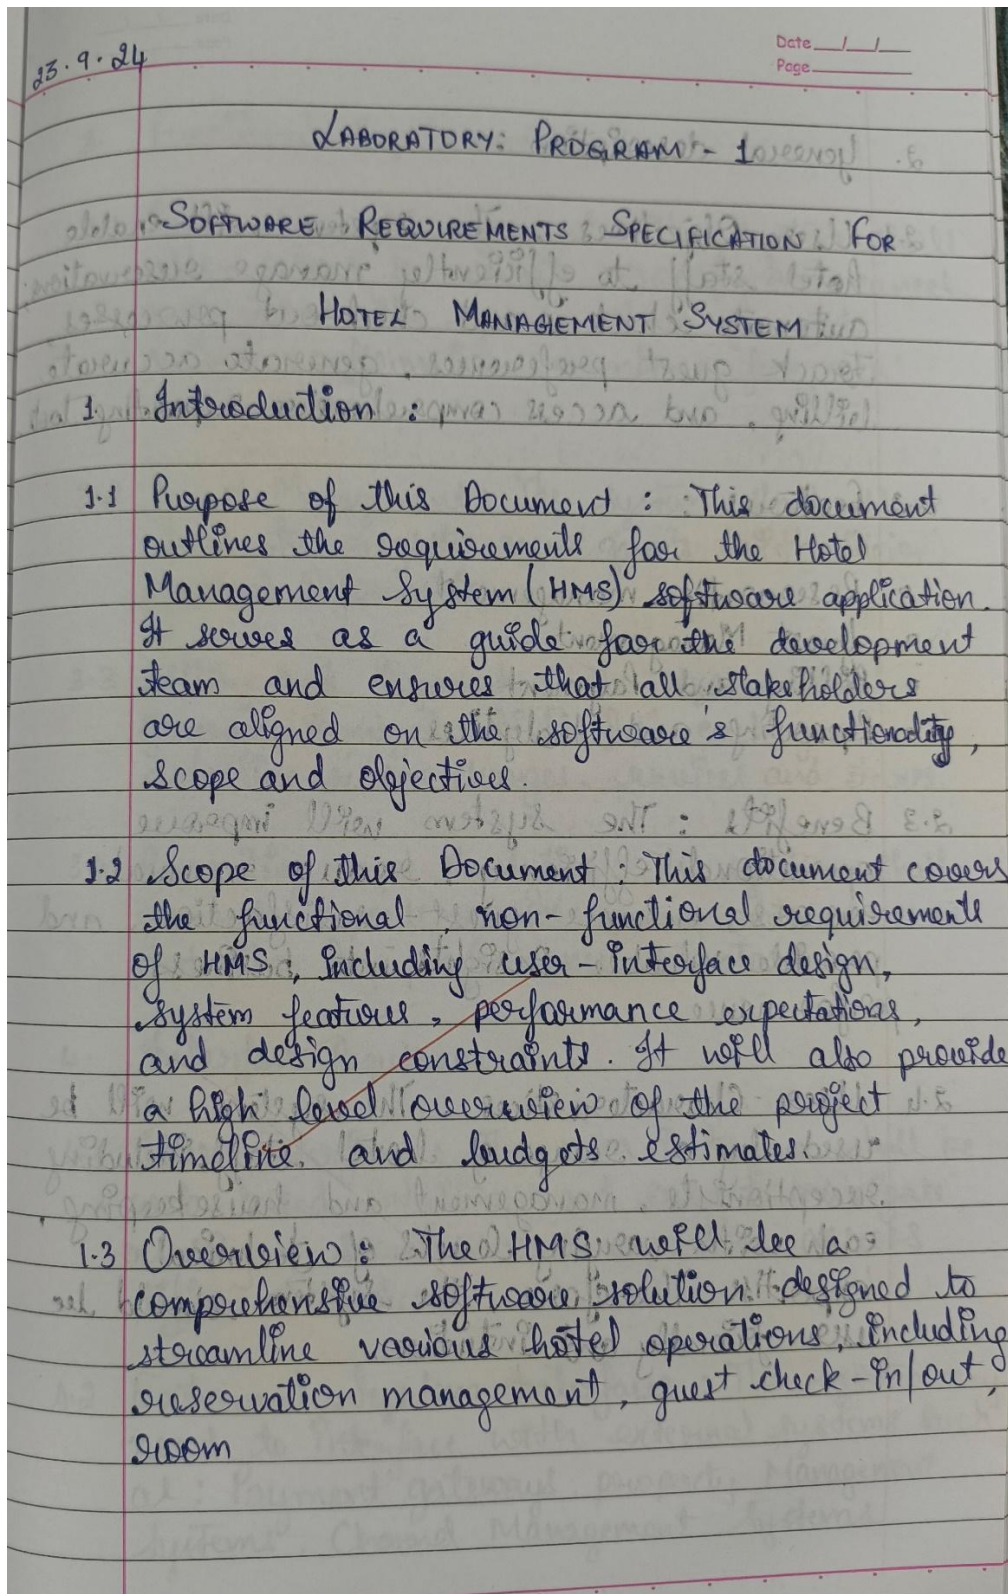 23.9.24
Date __/__/__
Page
LABORATORY: PROGRAM - 1
SOFTWARE REQUIREMENTS SPECIFICATION FOR
HOTEL MANAGEMENT SYSTEM
1. Introduction :
1.1 Purpose of this Document : This document
outlines the requirements for the Hotel
Management System (HMS) software application.
It serves as a guide for the development
team and ensures that all stakeholders
are aligned on the software's functionality,
scope and objectives.
1.2 Scope of this Document : This document covers
the functional, non-functional requirements
of HMS, including user-interface design,
system features, performance expectations,
and design constraints. It will also provide
a high level overview of the project
timeline and budgets estimates.
1.3 Overview : The HMS will be a
comprehensive software solution designed to
streamline various hotel operations, including
reservation management, guest check-in/out,
room